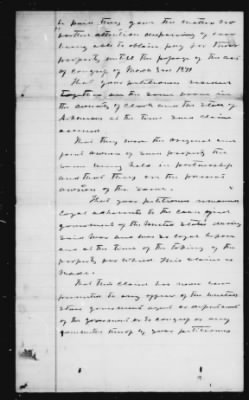 be paid they gave the matter no
further attention despairing of ever
being able to obtain pay for their
property untill the passage of the act
of congress of March 3rd 1871
That your petitioners resided
together on the same place in
the county of Clark and the State of
Arkansas at the time said claim
accrued
That they were the original and
joint owners of said property the
same being held in partnership
and that they are the present
owners of the same.
That your petitioners remained
loyal adherents to the cause and
government of the United States during
said war and was so loyal before
and at the time of the taking of the
property for which this claim is
made.
That this claim has never been
presented to any officer of the United
States government agent or department
of the government or to congress or any
committee thereof by your petitioners